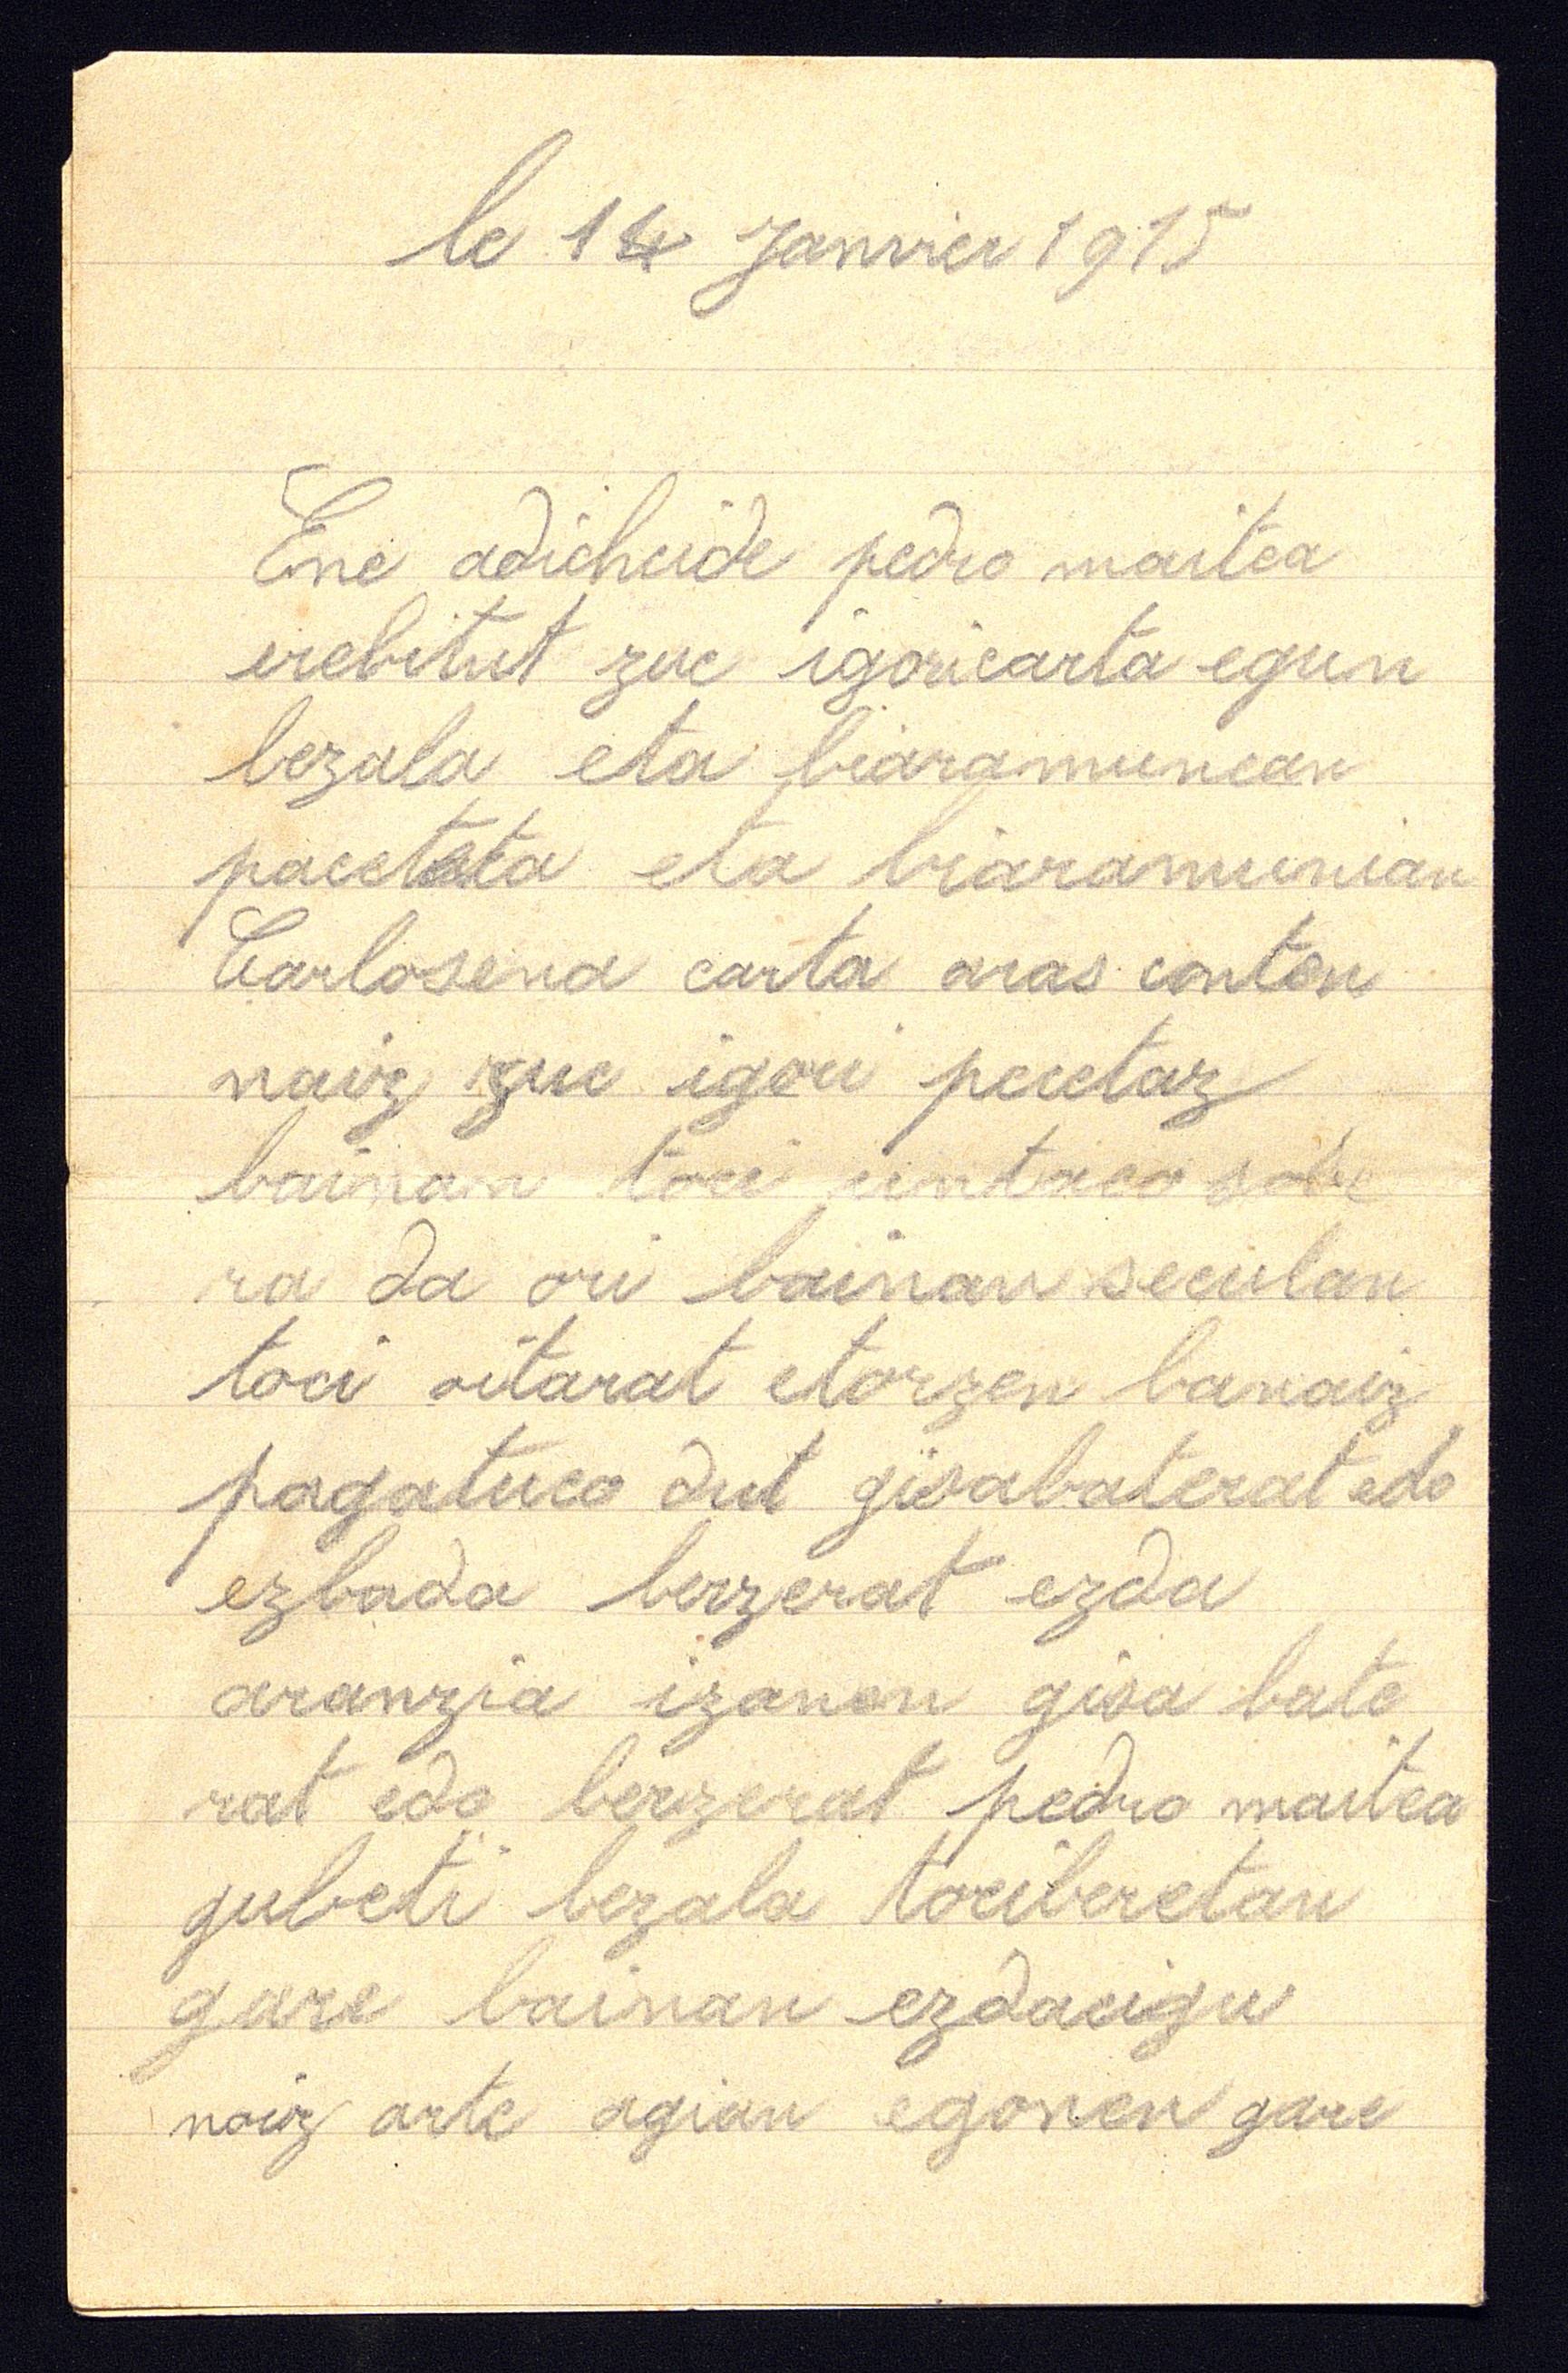 le 14 Janvier 1915
Ene adichcide pedro maitea
erebitut zuc igoricarta egun
bezala eta biaramunean
pacetata eta biaramunian
Carlosena carta aras conten
naiz zuc igori pecetaz
bainan toci untaco sobe
ra da ori bainan seculan
toci oitarat etorzen banaiz
pagatuco dut gisabaterat edo
ezbada berzerat ezda
aranzia izanen gisa bate
rat edo berzerat pedro maitea
gubeti bezala tociberetan
gare bainan ezdacigu
noiz arte agian egonen gare